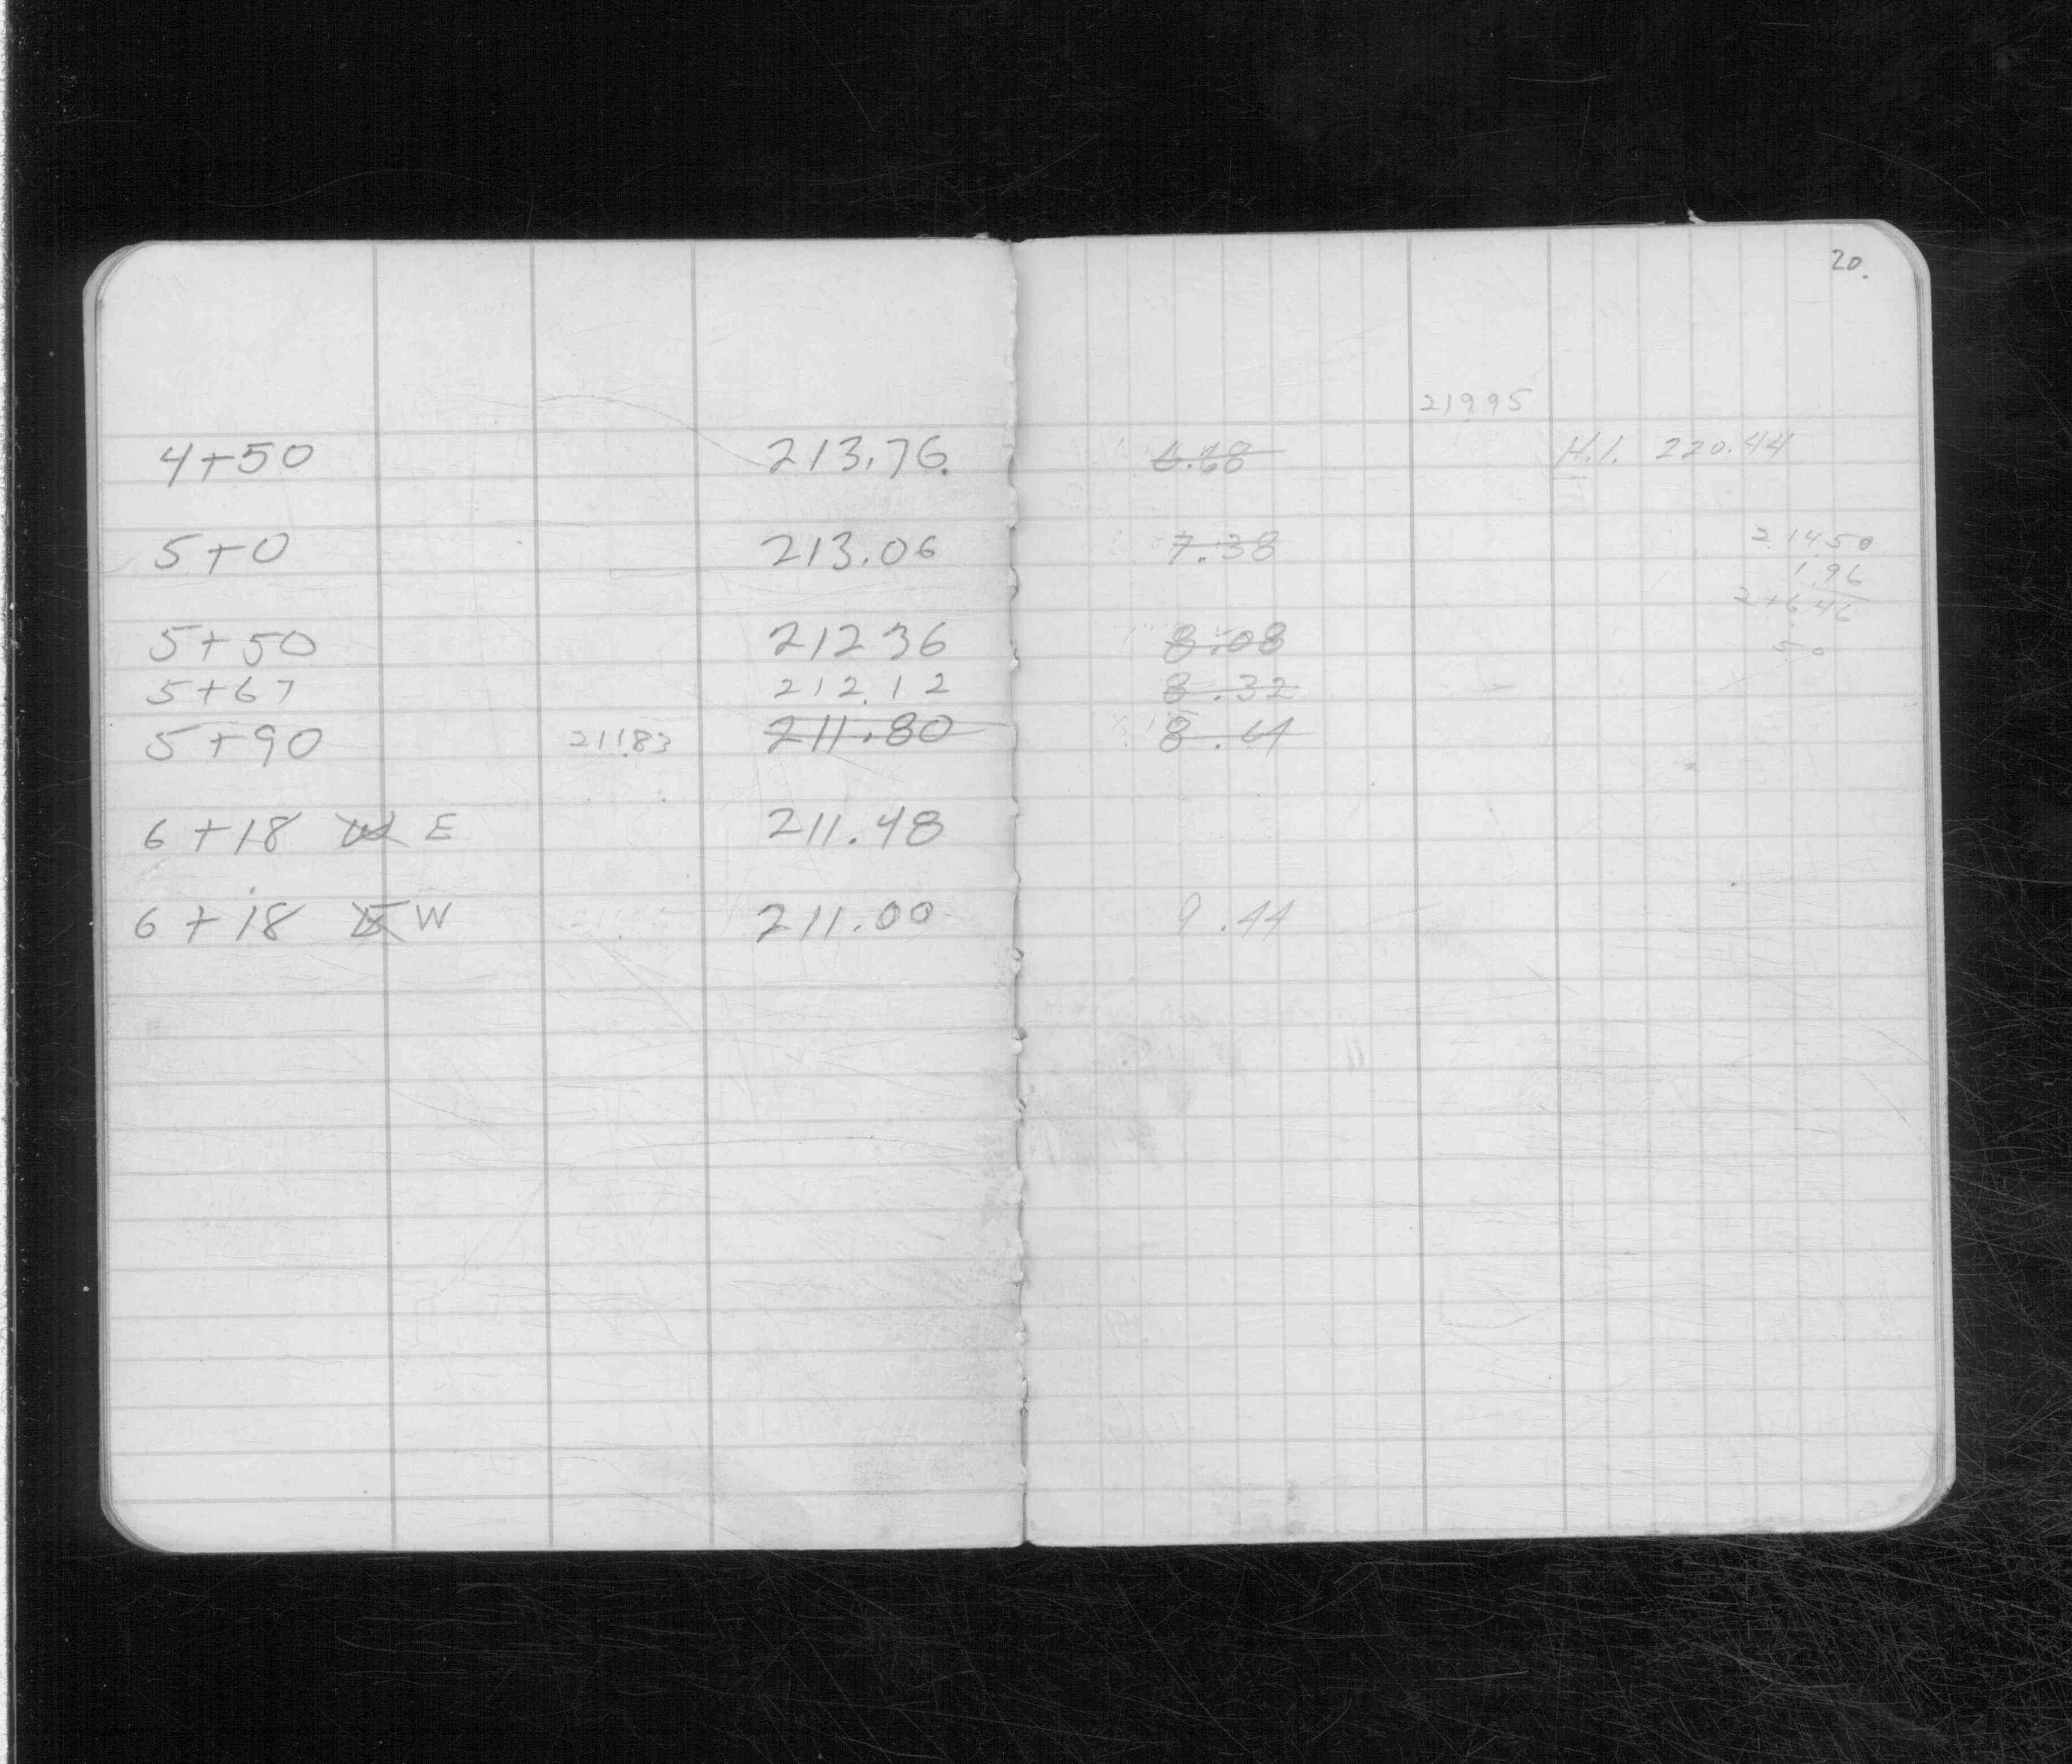 20.
21995
4+50 213.76 6.68 H.I. 220.44
5+0 213.06 7.38 214.50
1.96
216.46
5+50 212 36 8.08 50
5+67 212.12 8.32
5+90 211.83 211.80 8.64
6+18 E 211.48
6+18 W 211.00 9.44